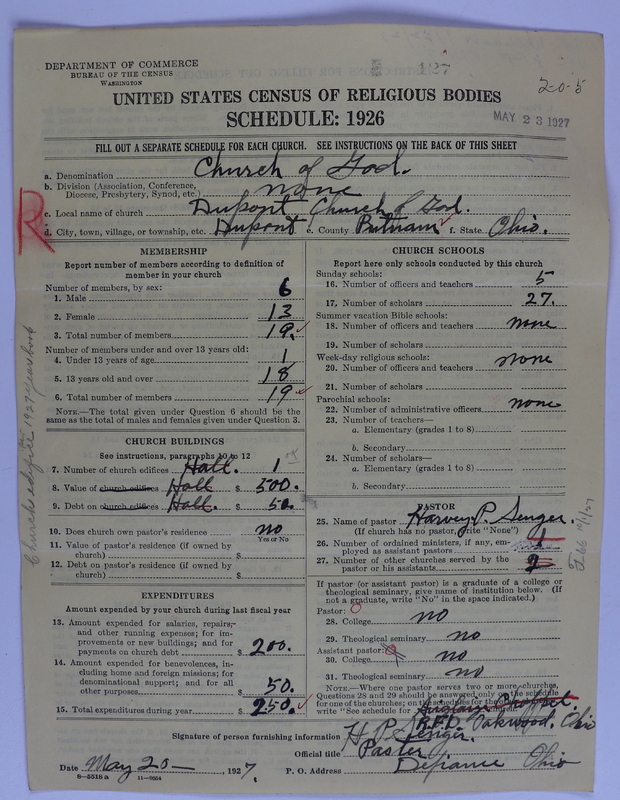 DEPARTMENT OF COMMERCE
BUREAU OF THE CENSUS
WASHINGTON
127
20-5
UNITED STATES CENSUS OF RELIGIOUS BODIES
SCHEDULE: 1926
MAY 23 1927
FILL OUT A SEPARATE SCHEDULE FOR EACH CHURCH. SEE INSTRUCTIONS ON THE BACK OF THIS SHEET
R
a. Denomination Church of God.
b. Division (Association, Conference, Diocese, Presbytery, Synod, etc.) none
c. Local name of church Dupont Church of God.
d. City, town, village, or township, etc. Dupont e. County Putnam f. State Ohio.
MEMBERSHIP
Report number of members according to definition of member in your church
Number of members, by sex:
1. Male 6
2. Female 13
3. Total number of members 19.
Number of members under and over 13 years old:
4. Under 13 years of age 1
5. 13 years old and over 18
6. Total number of members 19
NOTE.—The total given under Question 6 should be the same as the total of males and females given under Question 3.
CHURCH BUILDINGS
See instructions, paragraphs 10 to 12
7. Number of church edifices Hall. 1
8. Value of church edifices Hall $ 500.
9. Debt on church edifices Hall. $ 50.
10. Does church own pastor's residence no
Yes or No
11. Value of pastor's residence (if owned by church) $
12. Debt on pastor's residence (if owned by church) $
EXPENDITURES
Amount expended by your church during last fiscal year
13. Amount expended for salaries, repairs, and other running expenses; for improvements or new buildings; and for payments on church debt $ 200.
14. Amount expended for benevolences, including home and foreign missions; for denominational support; and for all other purposes $ 50.
15. Total expenditures during year $ 250.
CHURCH SCHOOLS
Report here only schools conducted by this church
Sunday schools:
16. Number of officers and teachers 5
17. Number of scholars 27.
Summer vacation Bible schools:
18. Number of officers and teachers none
19. Number of scholars
Week-day religious schools:
20. Number of officers and teachers none
21. Number of scholars
Parochial schools:
22. Number of administrative officers none
23. Number of teachers—
a. Elementary (grades 1 to 8)
b. Secondary
24. Number of scholars—
a. Elementary (grades 1 to 8)
b. Secondary
PASTOR
25. Name of pastor Harvey P. Senger.
(If church has no pastor, write "None")
26. Number of ordained ministers, if any, employed as assistant pastors 1
27. Number of other churches served by the pastor or his assistants
If pastor (or assistant pastor) is a graduate of a college or theological seminary, give name of institution below. (If not a graduate, write "No" in the space indicated.)
Pastor:
28. College no
29. Theological seminary no
Assistant pastor:
30. College no
31. Theological seminary no
NOTE.—Where one pastor serves two or more churches, Questions 28 and 29 should be answered only on the schedule for one of the churches; on the schedules for the
write "See schedule for Chapel.
R.F.D. Oakwood, Ohio
Signature of person furnishing information H P Senger.
Official title Paster
Date May 20—, 1927. P. O. Address Defiance Ohio
8-5518 a 11-5664